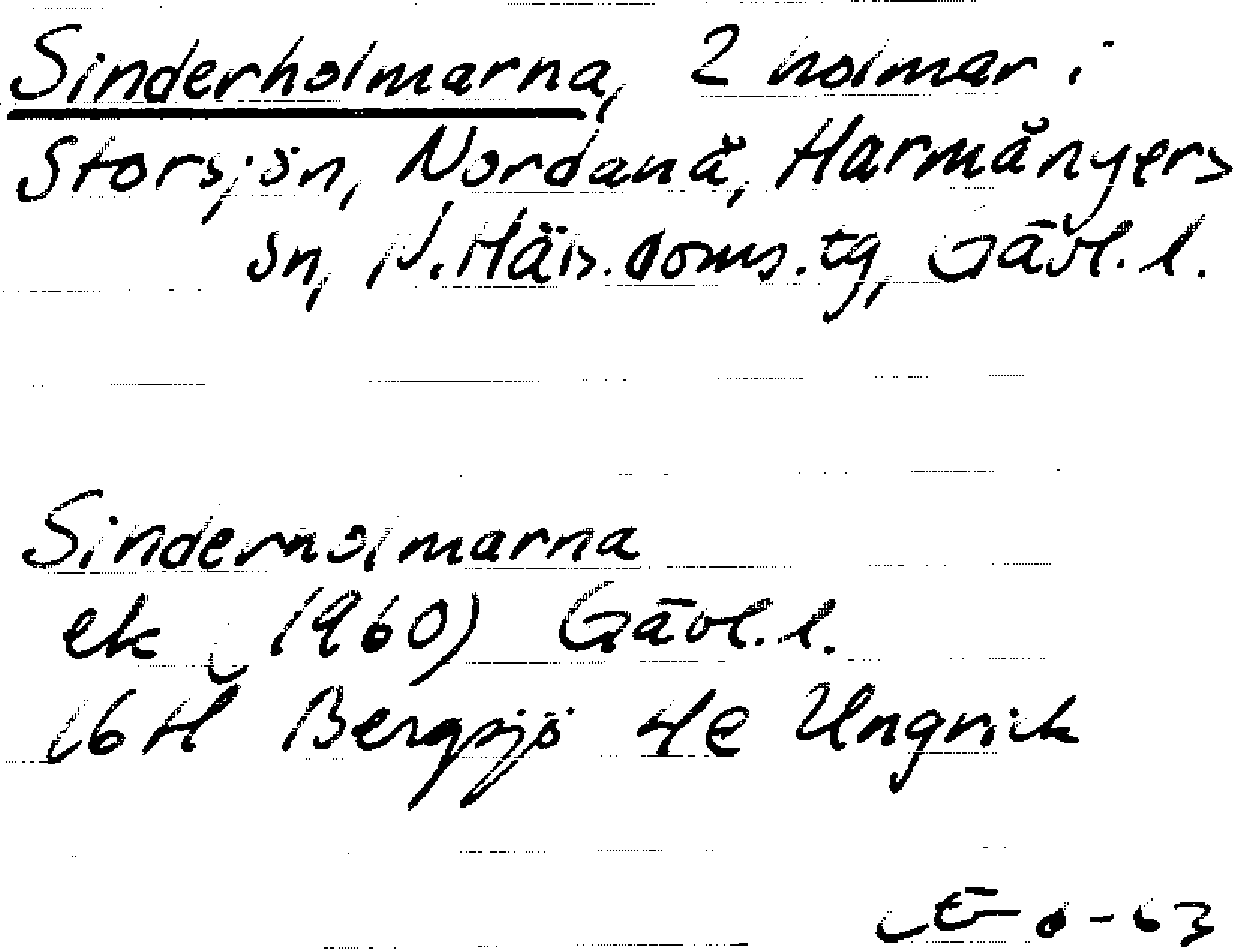 Sinderholmarna, 2 holmar i
Storsjön, Nordanå, Harmångers
sn, N. Häls. doms. tg, Gävl. l.
Sinderholmarna
ek (1960) Gävl. l.
16H Bergsjö 4e Ungvik